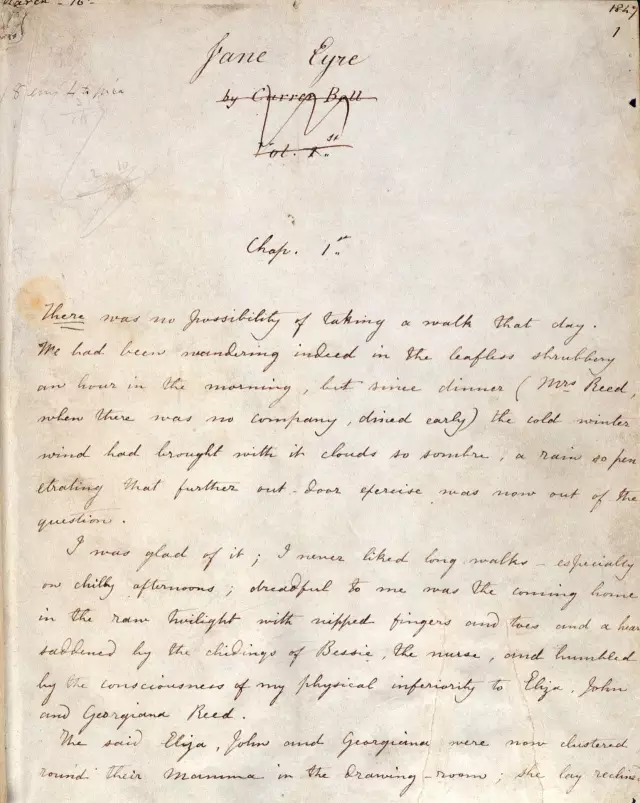 March 16
1847
1
Jane Eyre
by Currer Bell
Vol. 1st
Chap. 1st
There was no possibility of taking a walk that day.
We had been wandering indeed in the leafless shrubbery
an hour in the morning, but since dinner (Mrs Reed,
when there was no company, dined early) the cold winter
wind had brought with it clouds so sombre, a rain so pen
etrating that further out-door exercise was now out of the
question.
I was glad of it; I never liked long walks - especially
on chilly afternoons; dreadful to me was the coming home
in the raw twilight with nipped fingers and toes and a hear
saddened by the chidings of Bessie, the nurse, and humbled
by the consciousness of my physical inferiority to Eliza, John
and Georgiana Reed.
The said Eliza, John and Georgiana were now clustered
round their Mamma in the drawing-room; she lay reclin